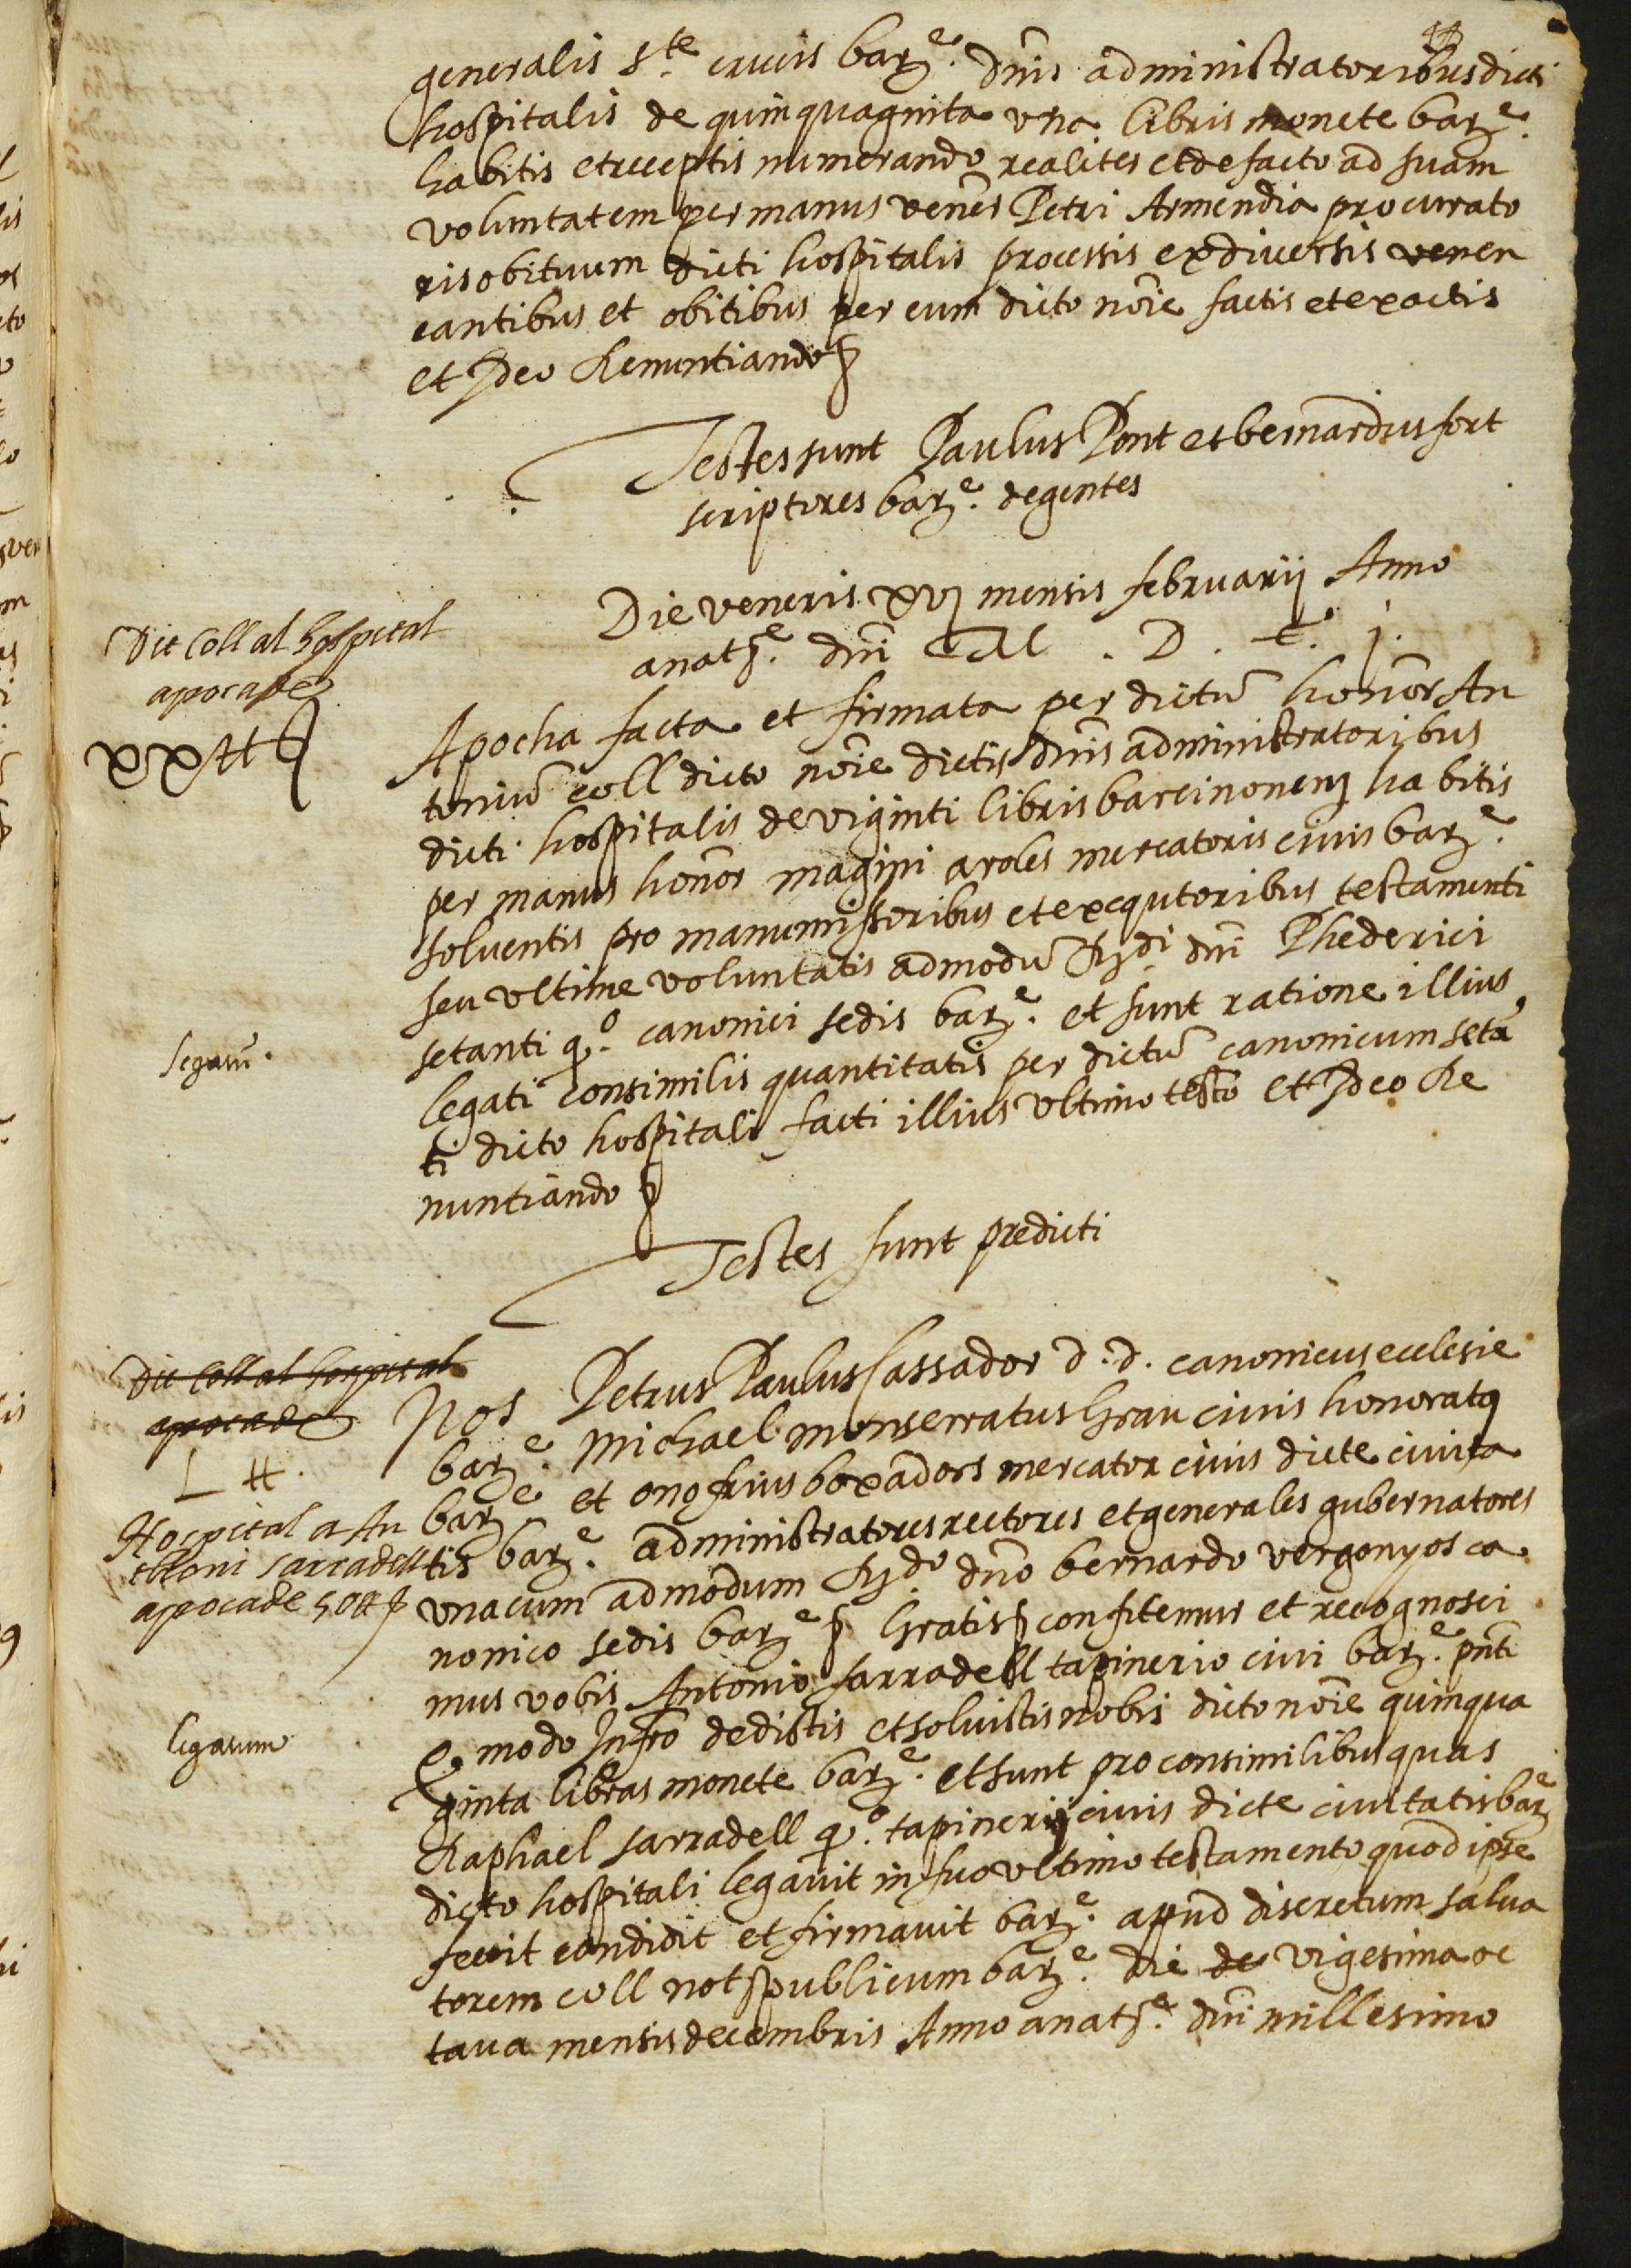 44
generalis S.te crucis barȝ.e dn̄is administratoribus dicti
hospitalis de quinquaginta vna libris monete barȝ.e
habitis et receptis numerando realiter et de facto ad suam
voluntatem per manus venēr Petri Armendia procurato
ris obituum dicti hospitalis processis ex diuersis vener
cantibus et obitibus per eum dicto nōie factis et exactis
et Ideo Renuntiando ꝭ
Testes sunt Paulus Pont et bernardus fort
scriptores barȝ.e degentes
Die veneris xvj mensis februarij Anno
anatȝ.e dn̄i M . D . L . j .
Dit Coll al hospital
apoca de
xx ₶ ꝭ
Apocha facta et firmata per dictū honōr An
toniū coll dicto nōie dictis dn̄is administratoribus
dicti hospitalis de viginti libris barcinonenȝ habitis
per manus honōr magini aroles mercatoris ciuis barȝ.e
soluentis pro manumissoribus et exequtoribus testamenti
seu vltime voluntatis admodū Rȝ.di dn̄i Phederici
setanti q.o canonici sedis barȝ.e et sunt ratione illius
legatū.
legati consimilis quantitatis per dictū canonicum setā
ti dicto hospitali facti illius vltimo testō et Ideo Re
nuntiando ꝭ
Testes sunt predicti
Dit Coll al hospital
apoca de
L ₶ .
Hospital a An
thoni sarradell
apoca de 50 ₶ ꝭ
Nos Petrus Paulus Cassador d. d. canonicus ecclesie
barȝ.e Michael monserratus Grau ciuis honoratꝰ
barȝ.e et onofrius boxadors mercator ciuis dicte ciuita
tis barȝ.e administratores rectores et generales gubernatores
vna cum admodum Rȝ.do dn̄o bernardo vergonyos ca
nonico sedis barȝ.e ꝭ Gratis ꝭ confitemur et recognosci
mus vobis Antonio sarradell tapinerio ciui barȝ.e pn̄ti
legatum
Q. modo Infrō dedistis et soluistis nobis dicto nōie quinqua
ginta libras monete barȝ.e et sunt pro consimilibus quas
Raphael sarradell q.o tapinerij ciuis dicte ciuitatis barȝ.e
dicto hospitali legauit in suo vltimo testamento quod ipse
fecit condidit et firmauit barȝ.e apud discretum salua
torem coll notȝ publicum barȝ.e die de vigesima oc
taua mensis decembris Anno anatȝ.e dn̄i millesimo